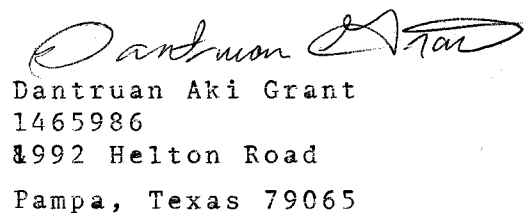 Dantruan Grant
Dantruan Aki Grant
1465986
1992 Helton Road
Pampa, Texas 79065